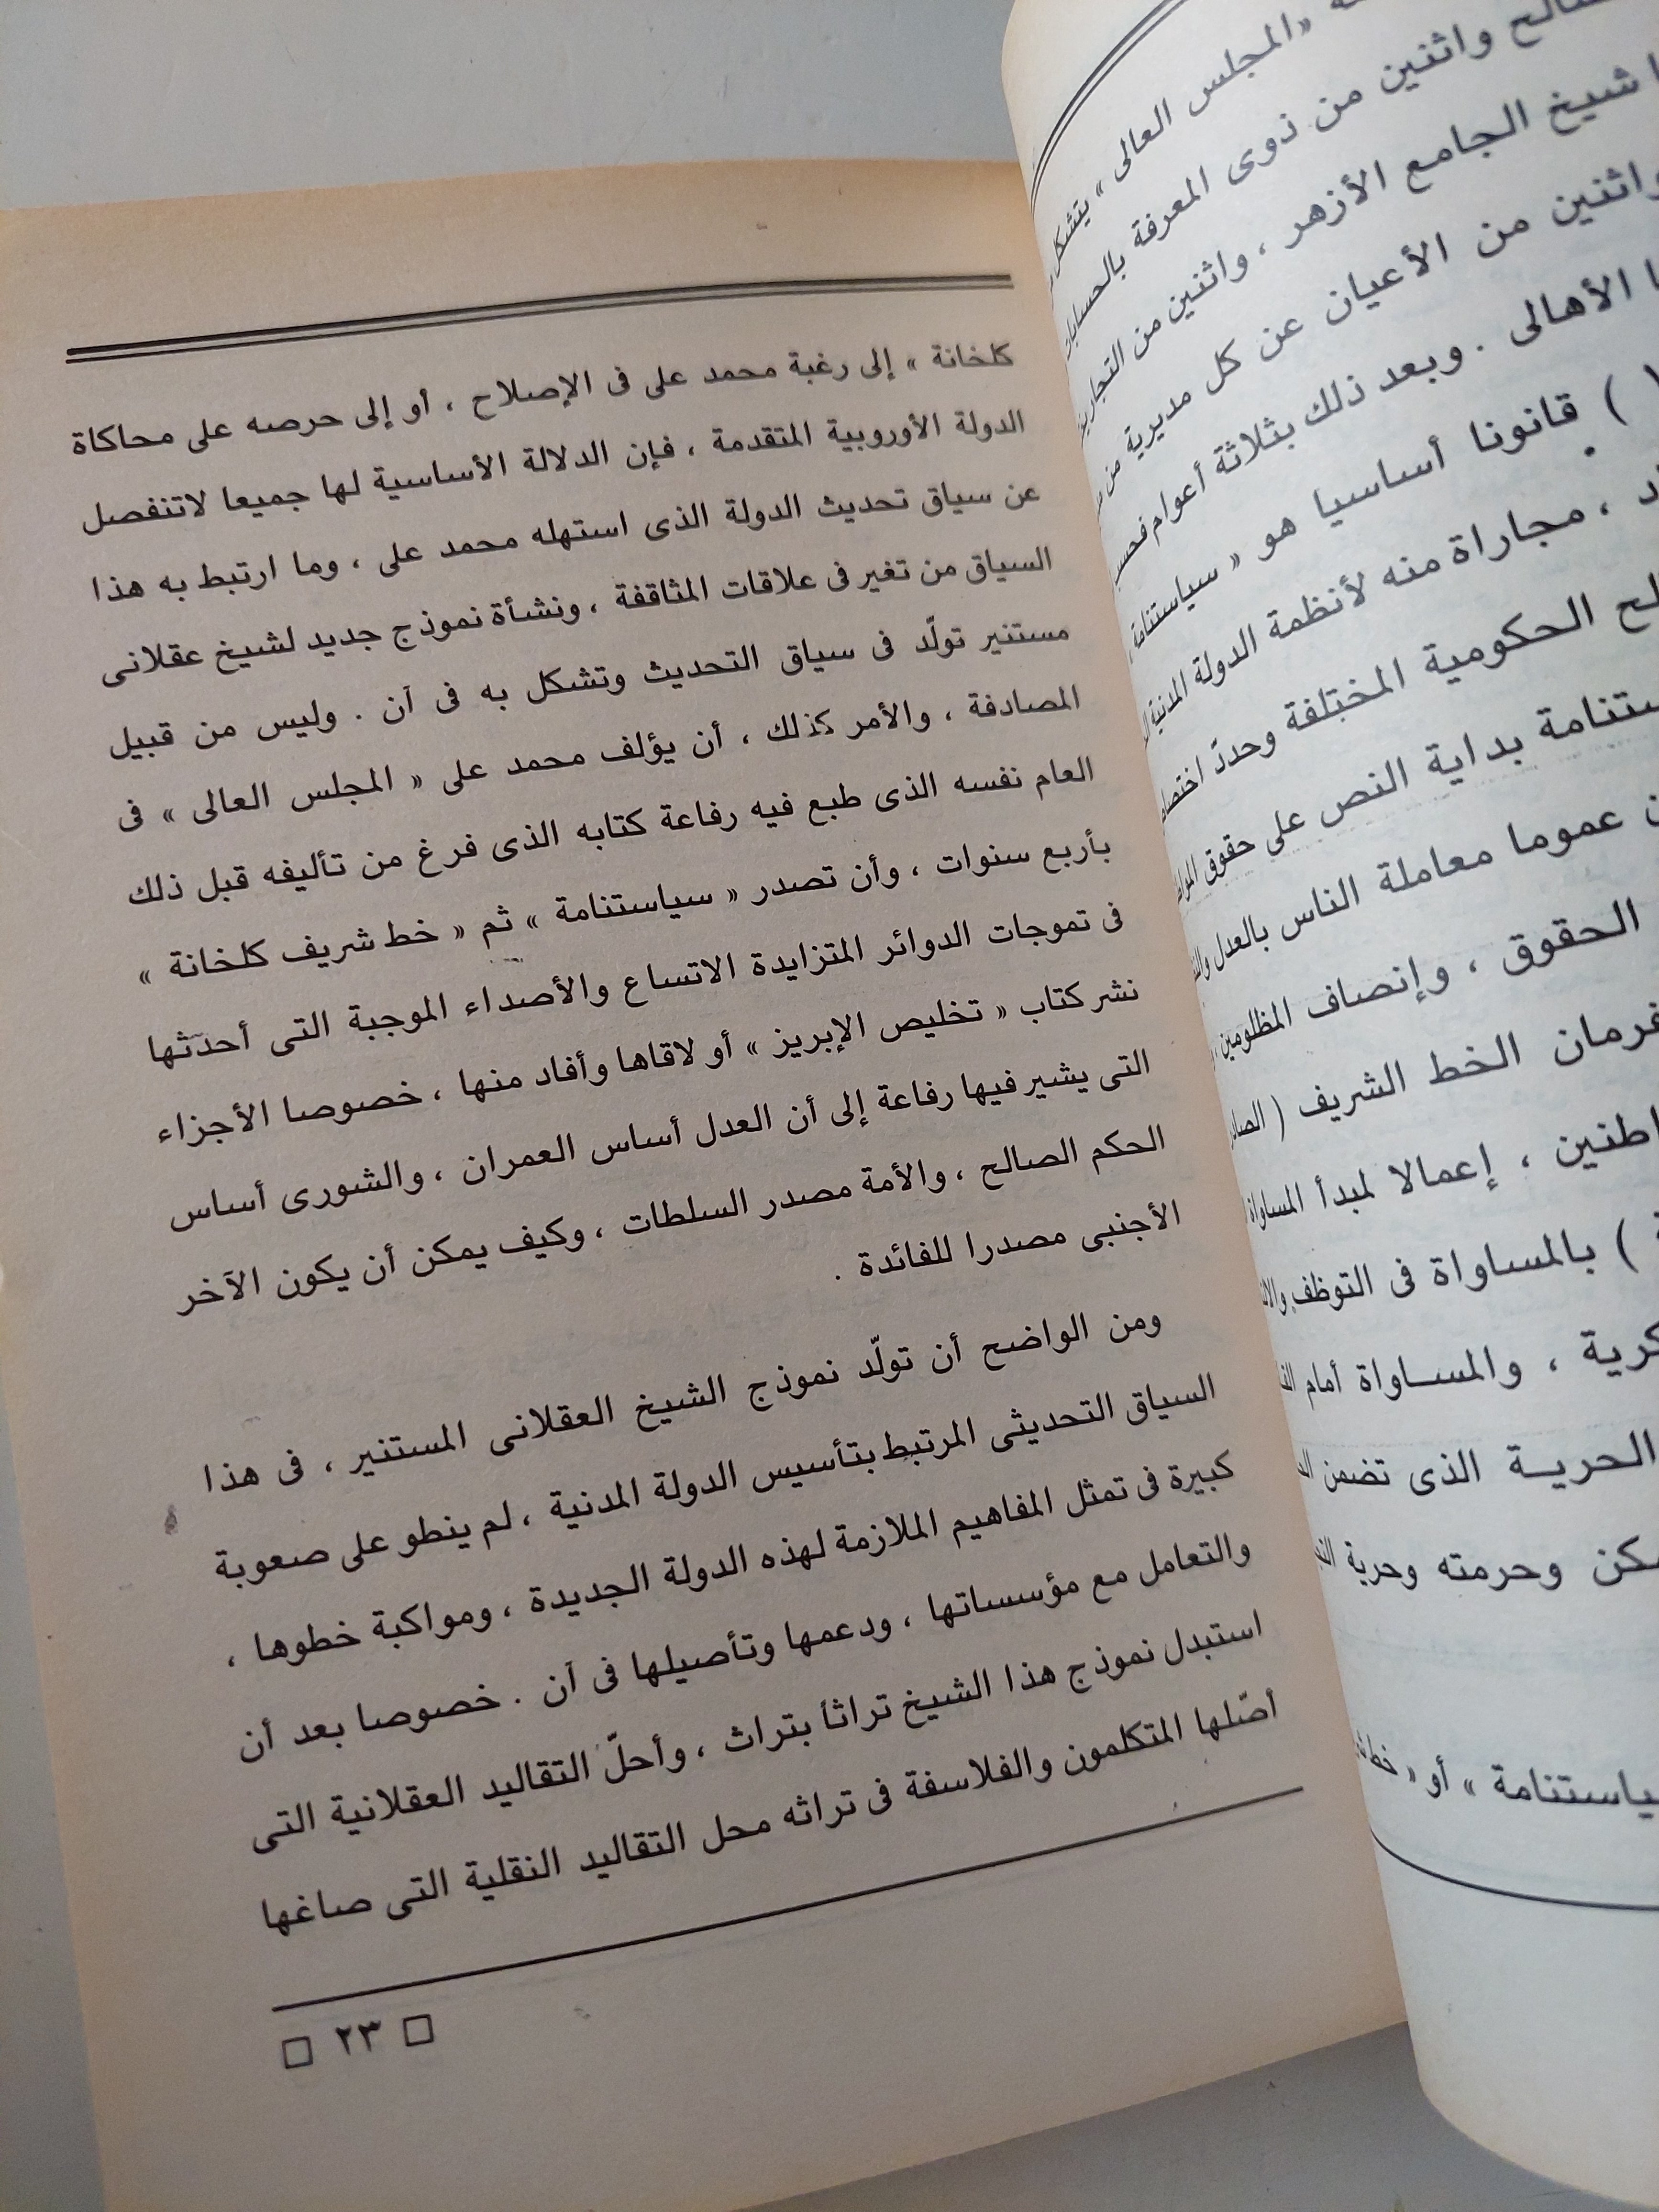 «المجلس العالى» يتشكل
واثنين من ذوى المعرفة بالحسابات
شيخ الجامع الأزهر ، واثنين من التجار
واثنين من الأعيان عن كل مديرية من
الأهالى . وبعد ذلك بثلاثة أعوام
) قانونا أساسيا هو « سياستنامة
، مجاراة منه لأنظمة الدولة المدنية
الحكومية المختلفة وحددّ
بداية النص على حقوق
عموما معاملة الناس بالعدل
الحقوق ، وإنصاف المظلومين
الخط الشريف (
، إعمالا لمبدأ المساواة
) بالمساواة فى التوظف
، والمساواة أمام
الحرية الذى تضمن
وحرمته وحرية
» أو «
كلخانة » إلى رغبة محمد على فى الإصلاح ، أو إلى حرصه على محاكاة
الدولة الأوروبية المتقدمة ، فإن الدلالة الأساسية لها جميعا لاتنفصل
عن سياق تحديث الدولة الذى استهله محمد على ، وما ارتبط به هذا
السياق من تغير فى علاقات المثاقفة ، ونشأة نموذج جديد لشيخ عقلانى
مستنير تولّد فى سياق التحديث وتشكل به فى آن . وليس من قبيل
المصادفة ، والأمر كذلك ، أن يؤلف محمد على « المجلس العالى » فى
العام نفسه الذى طبع فيه رفاعة كتابه الذى فرغ من تأليفه قبل ذلك
بأربع سنوات ، وأن تصدر « سياستنامة » ثم « خط شريف كلخانة »
فى تموجات الدوائر المتزايدة الاتساع والأصداء الموجبة التى أحدثها
نشر كتاب « تخليص الإبريز » أو لاقاها وأفاد منها ، خصوصا الأجزاء
التى يشير فيها رفاعة إلى أن العدل أساس العمران ، والشورى أساس
الحكم الصالح ، والأمة مصدر السلطات ، وكيف يمكن أن يكون الآخر
الأجنبى مصدرا للفائدة .
ومن الواضح أن تولّد نموذج الشيخ العقلانى المستنير ، فى هذا
السياق التحديثى المرتبط بتأسيس الدولة المدنية ، لم ينطو على صعوبة
كبيرة فى تمثل المفاهيم الملازمة لهذه الدولة الجديدة ، ومواكبة خطوها ،
والتعامل مع مؤسساتها ، ودعمها وتأصيلها فى آن . خصوصا بعد أن
استبدل نموذج هذا الشيخ تراثاً بتراث ، وأحلّ التقاليد العقلانية التى
أصّلها المتكلمون والفلاسفة فى تراثه محل التقاليد النقلية التى صاغها
□ ٢٣ □